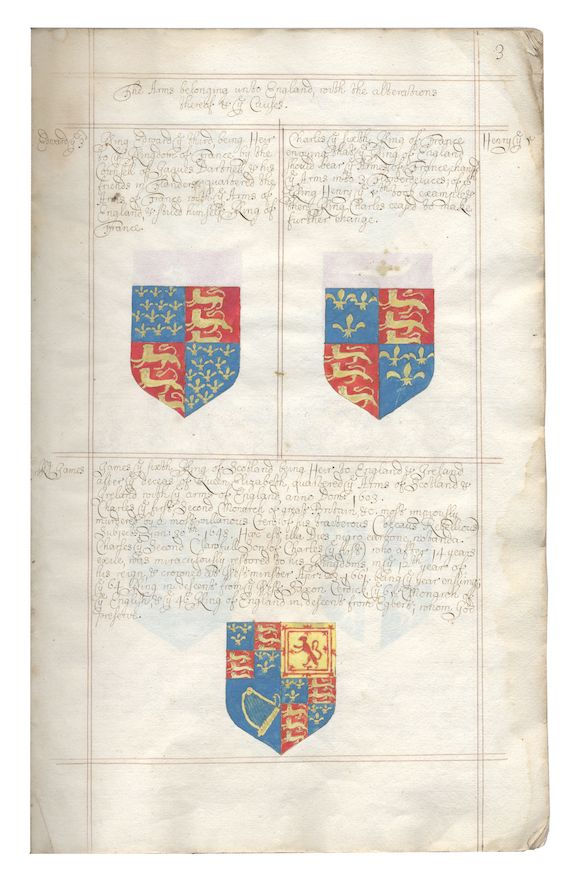 3
The Arms belonging unto England, with the alterations
thereof & ye Causes.
Edward ye 3d
King Edward ye third, being Heir
to ye Kingdom of France by the
Counsel of Jaques Dartnell & his
friends in Flanders, quartered the
Arms of France with ye Arms of
England, & stiled himself King of
France.
Charles ye sixth King of France
envying that ye King of England
should bear ye Armes of France, chang'd
ye Arms into 3 flower Deluces; of wch
King Henry ye 5th took example &
then King Charles ceas'd to make
further change.
Henry ye 5
K. James
James ye sixth King of Scotland being Heir to England & Ireland
after ye deceas of Queen Elizabeth, quartered ye Arms of Scotland &
Ireland with ye arms of England anno Domi 1603.
Charles ye first Second Monarch of great Britain, &c. most impiously
murdered by a most villanous Crew of his barberous Cobeard Rebellious
Subjects Janu: 30th 1648. Haec est illa Dies nigro carbone notanda.
Charles ye Second Eldest Son of Charles ye first who after 14 years
exile, was miraculously restored to his Kingdoms, in ye 12th year of
his reign, & crowned at Westminster Apr: 23 1661, being ye year ensuing
King in descent from ye first Saxon Cerdic ye Monarch of
ye English, & ye 45 King of England in descent from Egbert, whom God
preserve.